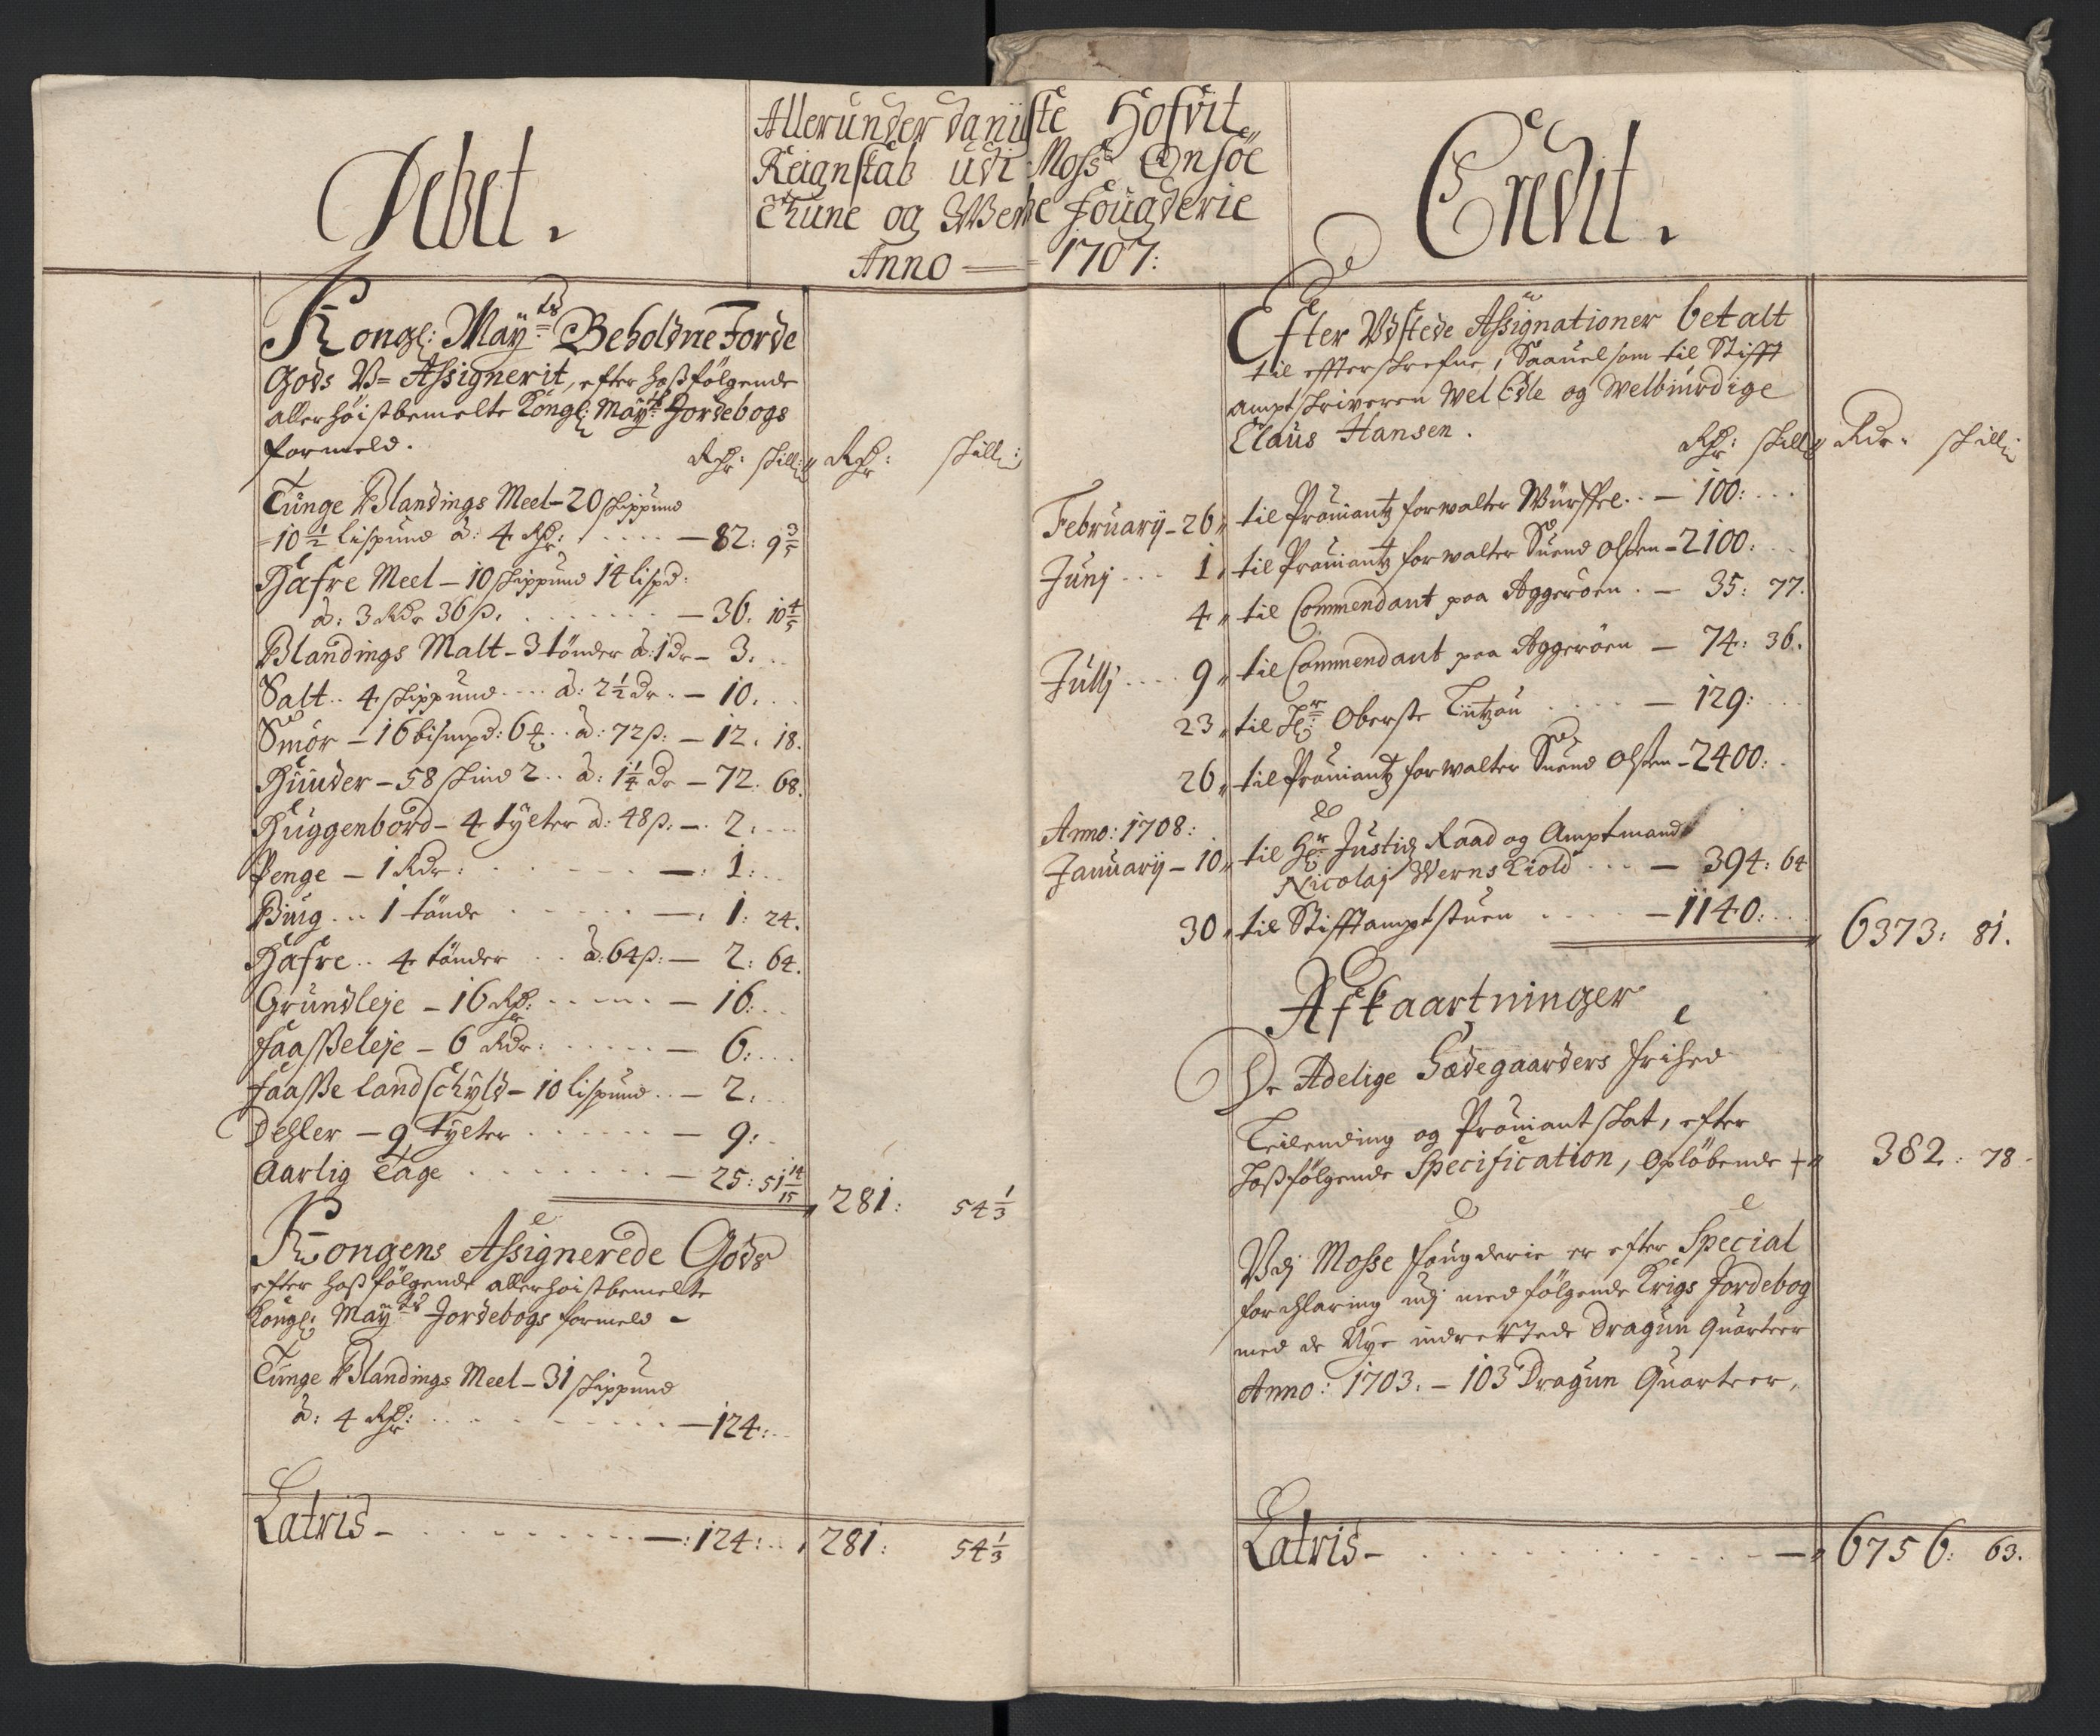 Allerunderdanigste Hofvit
Reignskab udi Moss Onsöe
Thune og Werne Fougderie
Anno 1707:
Debet.
Kongl: May:ts Beholdne Jorde
Gods U= Assignerit, efter hosfölgende
allerhöistbemelte Kongl: May:ts Jordebogs
formeld.
Rdr: skill: Rdr: skill:
Tunge Blandings Meel - 20 skippund
10 1/2 lispund à: 4 Rdr: - 82: 9 3/5
Hafre Meel - 10 skippund 14 lispd:
à: 3 Rdr 36 s: - 36: 10 4/5
Blandings Malt - 3 tönder à: 1 Dr - 3:
Salt .. 4 skippund à: 2 1/2 Dr - 10:
Smör - 16 bismpd: 6 à: 72 s: - 12: 18.
Huuder - 58 skind 2 .. à: 1 1/4 Dr - 72: 68.
Huggenbord - 4 tylter à: 48 s: - 2:
Penge - 1 Rdr: - 1:
Biug ... 1 tönde - 1: 24.
Hafre .. 4 tönder à: 64 s: - 2: 64.
Grundleje - 16 Rdr: - 16:
Faasseleje - 6 Rdr: - 6:
Faasse landschyld - 10 lispund - 2:
Dehler - 9 Tylter - 9:
Aarlig Tage - 25: 51 14/15
281: 54 1/3
Kongens Assignerede Gods
efter hosfölgende allerhöistbemelte
Kongl: May:ts Jordebogs formeld -
Tunge Blandings Meel - 31 skippund
à: 4 Rdr: - 124:
Latris - 124: 281: 54 1/3
Credit.
Efter Udstede Assignationer betalt
til effterskrefne, Saauelsom til Stifft
amptskriveren Wel Edle og Welbiurdige
Claus Hansen.
Rdr: skill: Rdr: skill:
Februarij - 26 til Proviantz forwalter Würffel - 100:
Junj 1 til Proviantz forwalter Suend Olssen - 2100:
4 til Commendant paa Aggeröen - 35: 77.
Julij 9 til Commendant paa Aggeröen - 74: 36.
23 til Hr: Oberste Lützou - 129:
26 til Proviantz forwalter Suend Olssen - 2400:
Anno: 1708:
Januarij - 10 til Hr: Justiz Raad og Amptmand
Nicolaj Werns Kiold - 394: 64
30 til Stifftamptstuen - 1140:
6373: 81.
Afkaartninger
De Adelige Sædegaarders frihed
Leilending og Proviant skat, efter
hosfölgende Specification, Opløbende 382: 78
Udj Mosse fougderie er efter Special
forchlaring udj medfölgende Krigs Jordebog
med de Nye indrettede Dragun Quarteer
Anno: 1703. - 103 Dragun Quarteer,
Latris - 6756: 63.